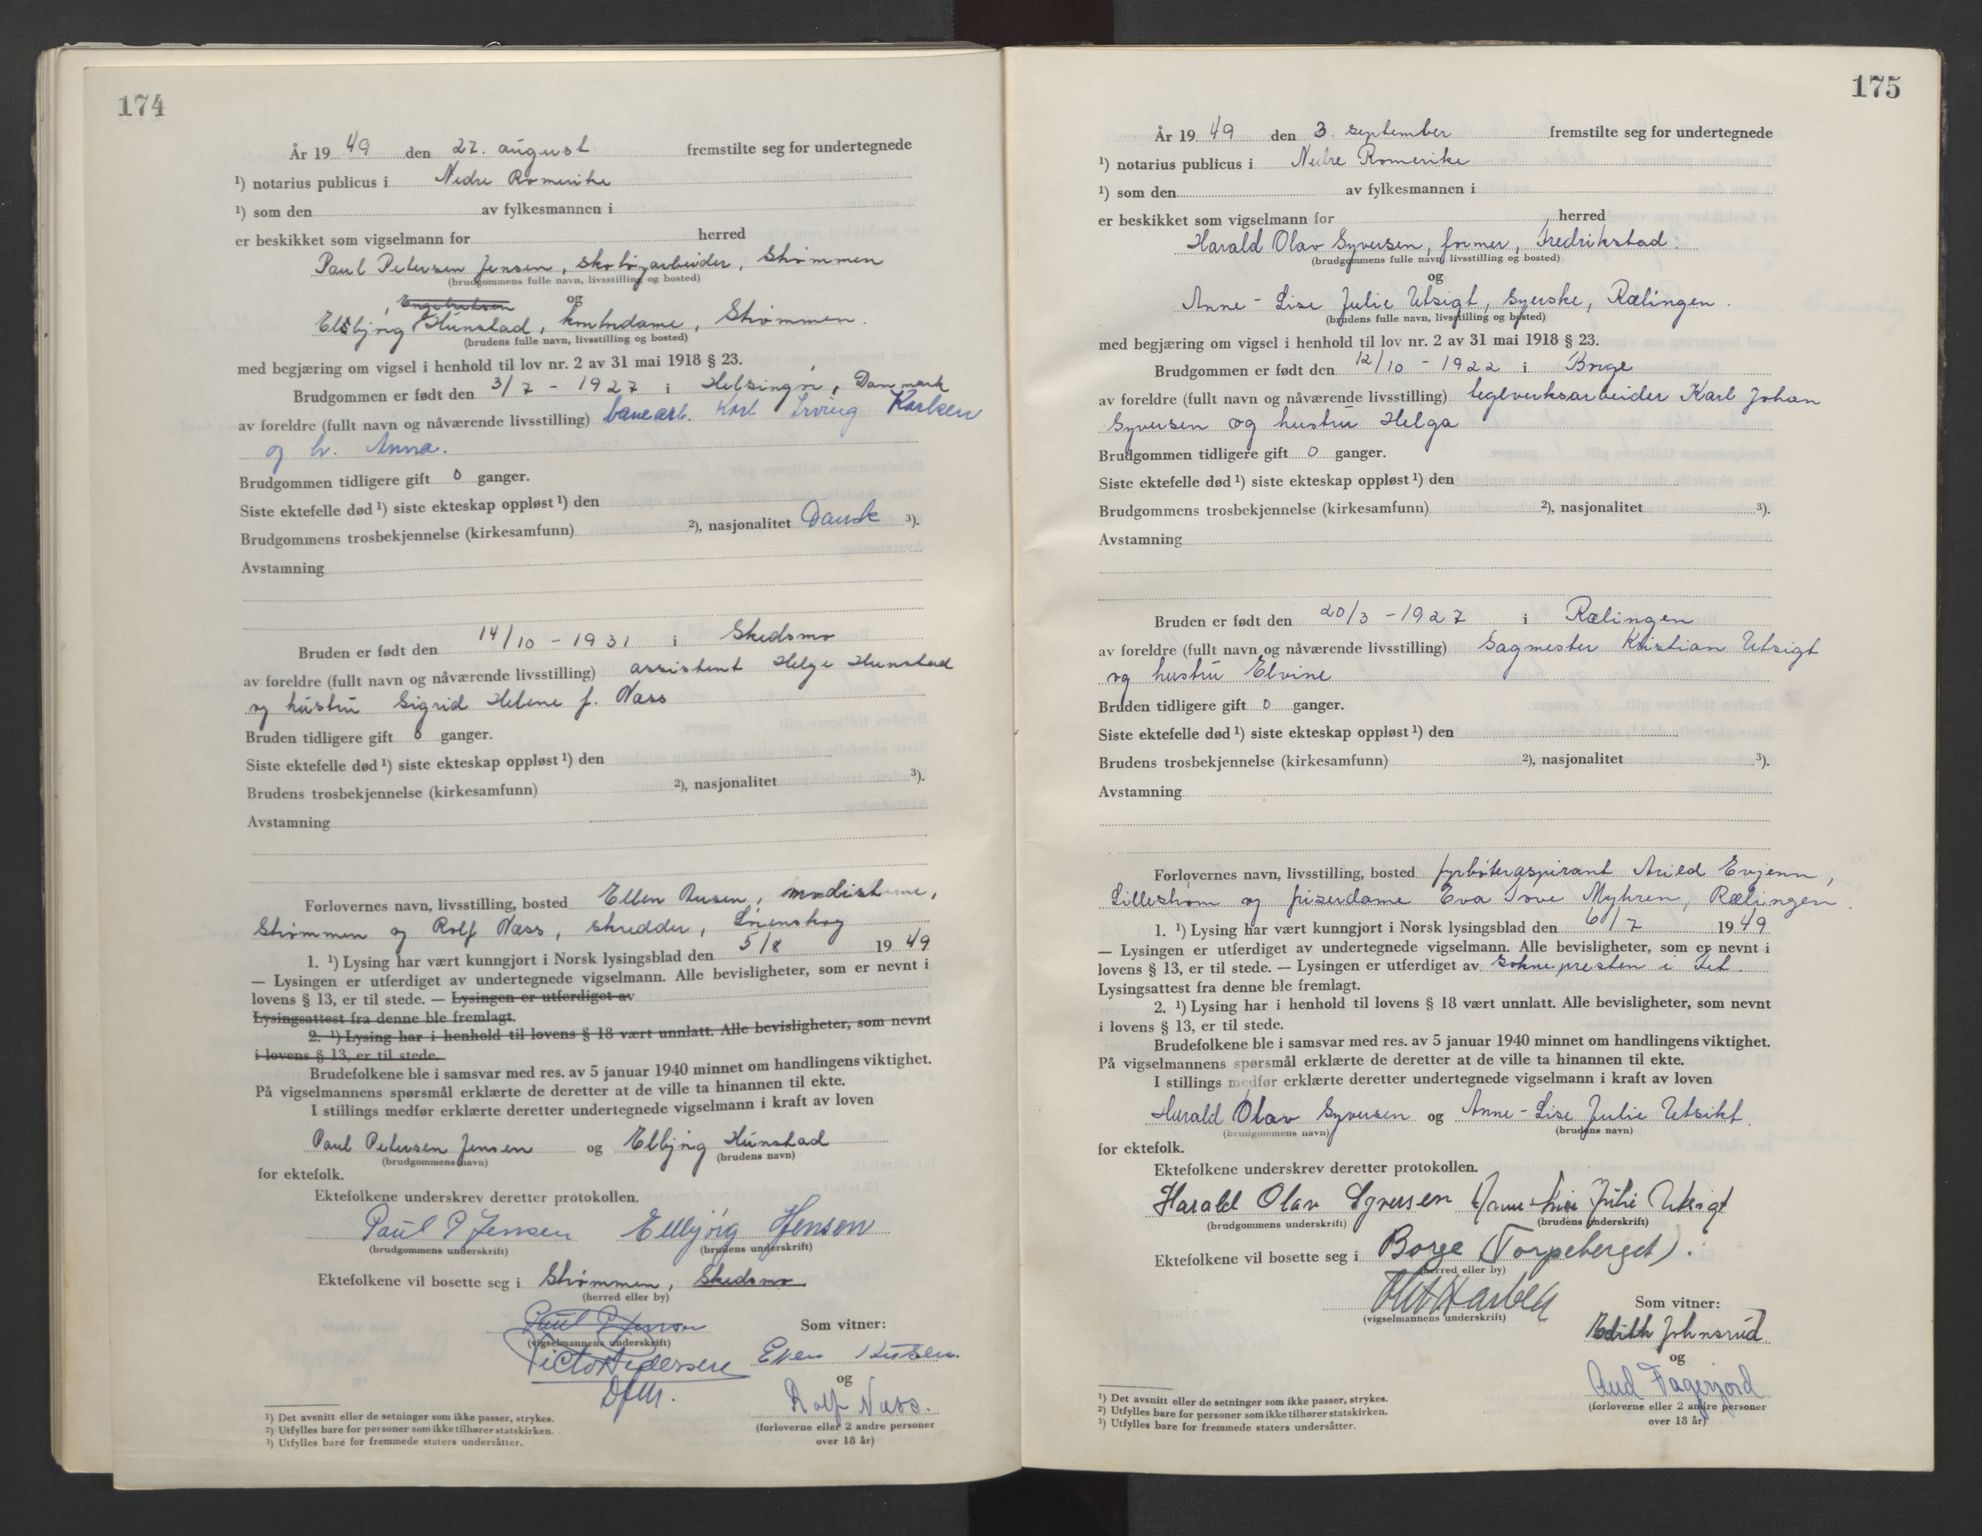 174
År 19 49 den 27. august fremstilte seg for undertegnede
¹) notarius publicus i Nedre Romerike
¹) som den av fylkesmannen i
er beskikket som vigselmann for herred
Paul Petersen Jensen, skotøyarbeider, Strømmen
(brudgommens fulle navn, livsstilling og bosted)
og
Ellbjørg Hunstad, kontordame, Strømmen.
(brudens fulle navn, livsstilling og bosted)
med begjæring om vigsel i henhold til lov nr. 2 av 31 mai 1918 § 23.
Brudgommen er født den 3/7 - 1927 i Helsingør, Danmark
av foreldre (fullt navn og nåværende livsstilling) banearb. Karl Irving Karlsen
og h. Anna.
Brudgommen tidligere gift 0 ganger.
Siste ektefelle død ¹) siste ekteskap oppløst ¹) den
Brudgommens trosbekjennelse (kirkesamfunn) ²), nasjonalitet Dansk ³).
Avstamning
Bruden er født den 14/10 - 1931 i Skedsmo
av foreldre (fullt navn og nåværende livsstilling) assistent Helge Hunstad
og hustru Sigrid Helene f. Næss
Bruden tidligere gift 0 ganger.
Siste ektefelle død ¹) siste ekteskap oppløst ¹) den
Brudens trosbekjennelse (kirkesamfunn) ²), nasjonalitet ³).
Avstamning
Forlovernes navn, livsstilling, bosted Ellen modistinne,
Strømmen og Rolf Næss, skredder, Lørenskog
1. ¹) Lysing har vært kunngjort i Norsk lysingsblad den 5/8 19 49
— Lysingen er utferdiget av undertegnede vigselmann. Alle bevisligheter, som er nevnt i
lovens § 13, er til stede. — Lysingen er utferdiget av
Lysingsattest fra denne ble fremlagt.
2. ¹) Lysing har i henhold til lovens § 18 vært unnlatt. Alle bevisligheter, som nevnt
i lovens § 13, er til stede.
Brudefolkene ble i samsvar med res. av 5 januar 1940 minnet om handlingens viktighet.
På vigselmannens spørsmål erklærte de deretter at de ville ta hinannen til ekte.
I stillings medfør erklærte deretter undertegnede vigselmann i kraft av loven
Paul Petersen Jensen og Ellbjørg Hunstad
(brudgommens navn) (brudens navn)
for ektefolk.
Ektefolkene underskrev deretter protokollen.
Paul P Jensen Ellbjørg Jensen
(brudgommens underskrift) (brudens underskrift)
Ektefolkene vil bosette seg i Strømmen, Skedsmo
(herred eller by)
Paul P Jensen Som vitner:
(vigselmannens underskrift)
Victor Pedersen Ellen
Dfm. og
Rolf Næss.
(forloverne eller 2 andre personer
over 18 år)
¹) Det avsnitt eller de setninger som ikke passer, strykes.
²) Utfylles bare for personer som ikke tilhører statskirken.
³) Utfylles bare for fremmede staters undersåtter.
175
År 19 49 den 3. september fremstilte seg for undertegnede
¹) notarius publicus i Nedre Romerike
¹) som den av fylkesmannen i
er beskikket som vigselmann for herred
Harald Olav Syversen, former, Fredrikstad.
(brudgommens fulle navn, livsstilling og bosted)
og
Anne-Lise Julie Utsigt, syerske, Rælingen.
(brudens fulle navn, livsstilling og bosted)
med begjæring om vigsel i henhold til lov nr. 2 av 31 mai 1918 § 23.
Brudgommen er født den 12/10 - 1922 i Borge
av foreldre (fullt navn og nåværende livsstilling) teglverksarbeider Karl Johan
Syversen og hustru Helga
Brudgommen tidligere gift 0 ganger.
Siste ektefelle død ¹) siste ekteskap oppløst ¹) den
Brudgommens trosbekjennelse (kirkesamfunn) ²), nasjonalitet ³).
Avstamning
Bruden er født den 20/3 - 1927 i Rælingen
av foreldre (fullt navn og nåværende livsstilling) Sagmester Kristian Utsigt
og hustru Elvine
Bruden tidligere gift 0 ganger.
Siste ektefelle død ¹) siste ekteskap oppløst ¹) den
Brudens trosbekjennelse (kirkesamfunn) ²), nasjonalitet ³).
Avstamning
Forlovernes navn, livsstilling, bosted fyrbøteraspirant Arild Evjenn,
Lillestrøm og frisørdame Eva Tove Myhren, Rælingen.
1. ¹) Lysing har vært kunngjort i Norsk lysingsblad den 6/7 19 49
— Lysingen er utferdiget av undertegnede vigselmann. Alle bevisligheter, som er nevnt i
lovens § 13, er til stede. — Lysingen er utferdiget av soknepresten i Fet.
Lysingsattest fra denne ble fremlagt.
2. ¹) Lysing har i henhold til lovens § 18 vært unnlatt. Alle bevisligheter, som nevnt
i lovens § 13, er til stede.
Brudefolkene ble i samsvar med res. av 5 januar 1940 minnet om handlingens viktighet.
På vigselmannens spørsmål erklærte de deretter at de ville ta hinannen til ekte.
I stillings medfør erklærte deretter undertegnede vigselmann i kraft av loven
Harald Olav Syversen og Anne-Lise Julie Utsikt.
(brudgommens navn) (brudens navn)
for ektefolk.
Ektefolkene underskrev deretter protokollen.
Harald Olav Syversen Anne Lise Julie Utsigt
(brudgommens underskrift) (brudens underskrift)
Ektefolkene vil bosette seg i Borge (Torpeberget).
(herred eller by)
Som vitner:
(vigselmannens underskrift)
Edith Johnsrud
og
Aud Fagerjord
(forloverne eller 2 andre personer
over 18 år)
¹) Det avsnitt eller de setninger som ikke passer, strykes.
²) Utfylles bare for personer som ikke tilhører statskirken.
³) Utfylles bare for fremmede staters undersåtter.